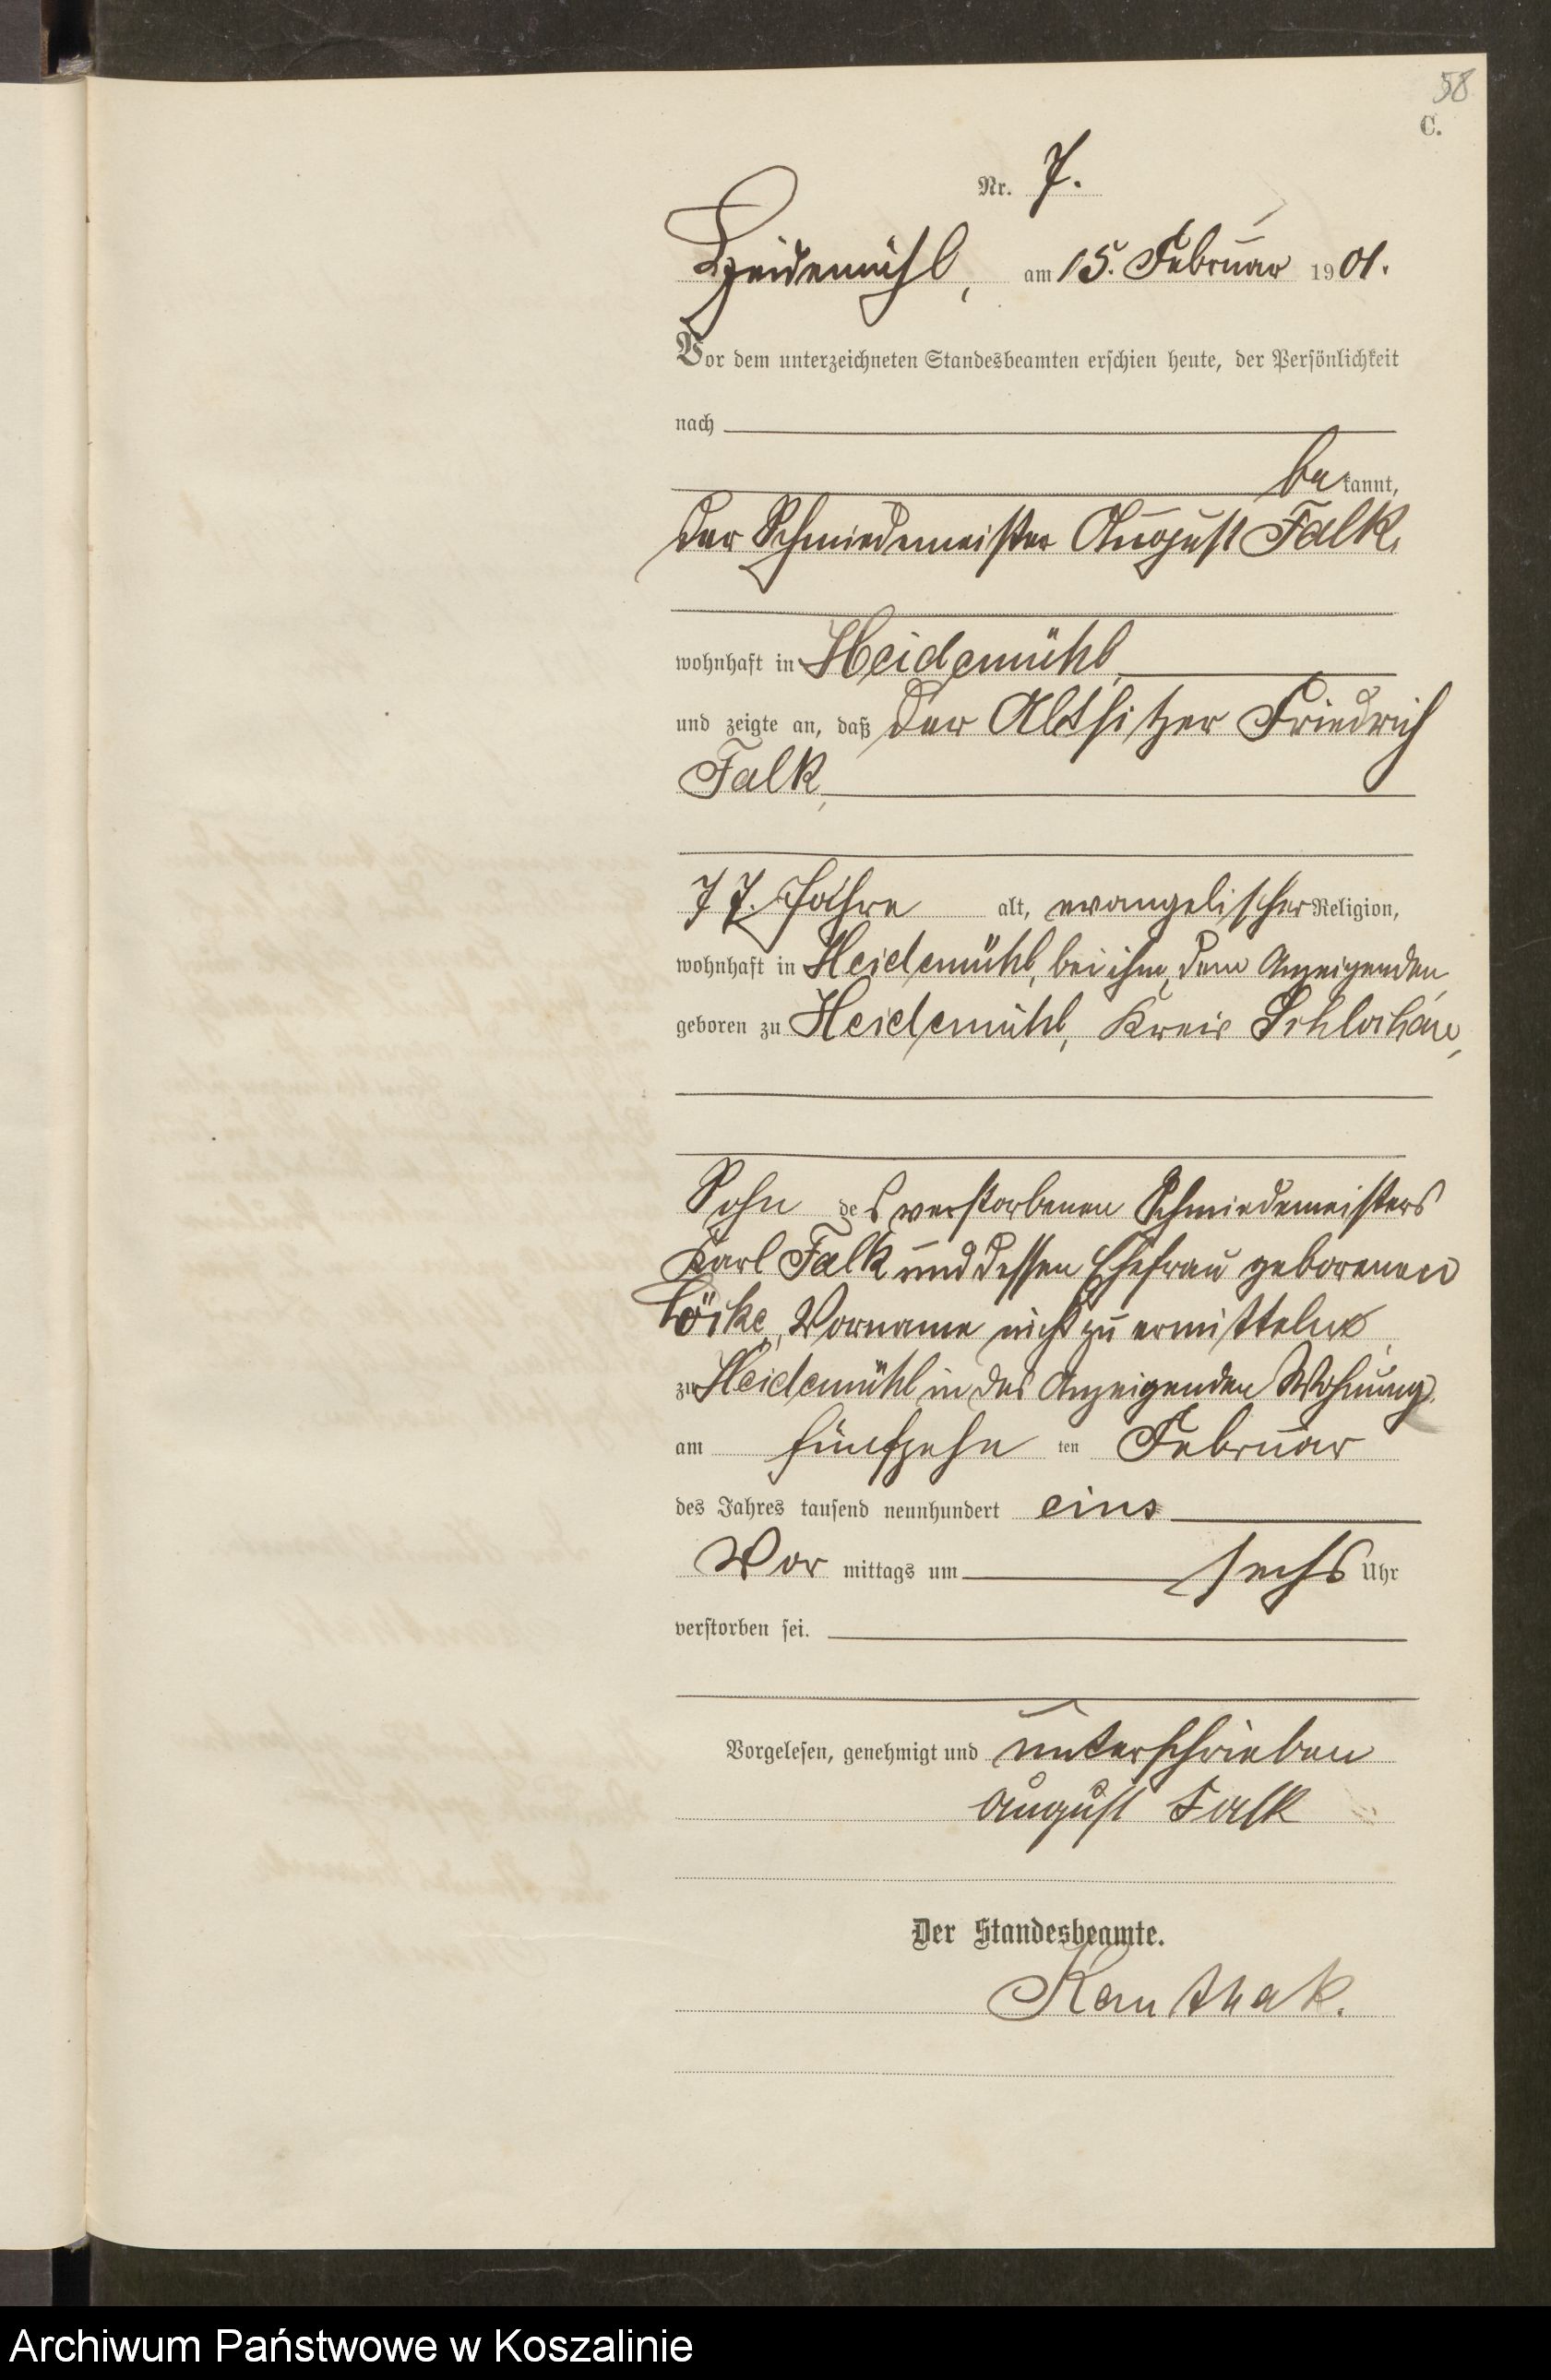 58
C.
Nr. 7.
Heidemühl, am 15. Februar 1901.
Vor dem unterzeichneten Standesbeamten erschien heute, der Persönlichkeit
nach
bekannt,
der Schmiedemeister August Falk,
wohnhaft in Heidemühl,
und zeigte an, daß der Altsitzer Friedrich
Falk,
77. Jahre alt, evangelischer Religion,
wohnhaft in Heidemühl, bei ihm, dem Anzeigenden,
geboren zu Heidemühl, Kreis Schlochau,
Sohn des verstorbenen Schmiedemeisters
Karl Falk und dessen Ehefrau geborenen
Vorname nicht zu ermitteln
zu Heidemühl in des Anzeigenden Wohnung,
am fünfzehn ten Februar
des Jahres tausend neunhundert eins
Vor mittags um sechs Uhr
verstorben sei.
Vorgelesen, genehmigt und unterschrieben
August Falk
Der Standesbeamte.
Kanthak.
Archiwum Państwowe w Koszalinie